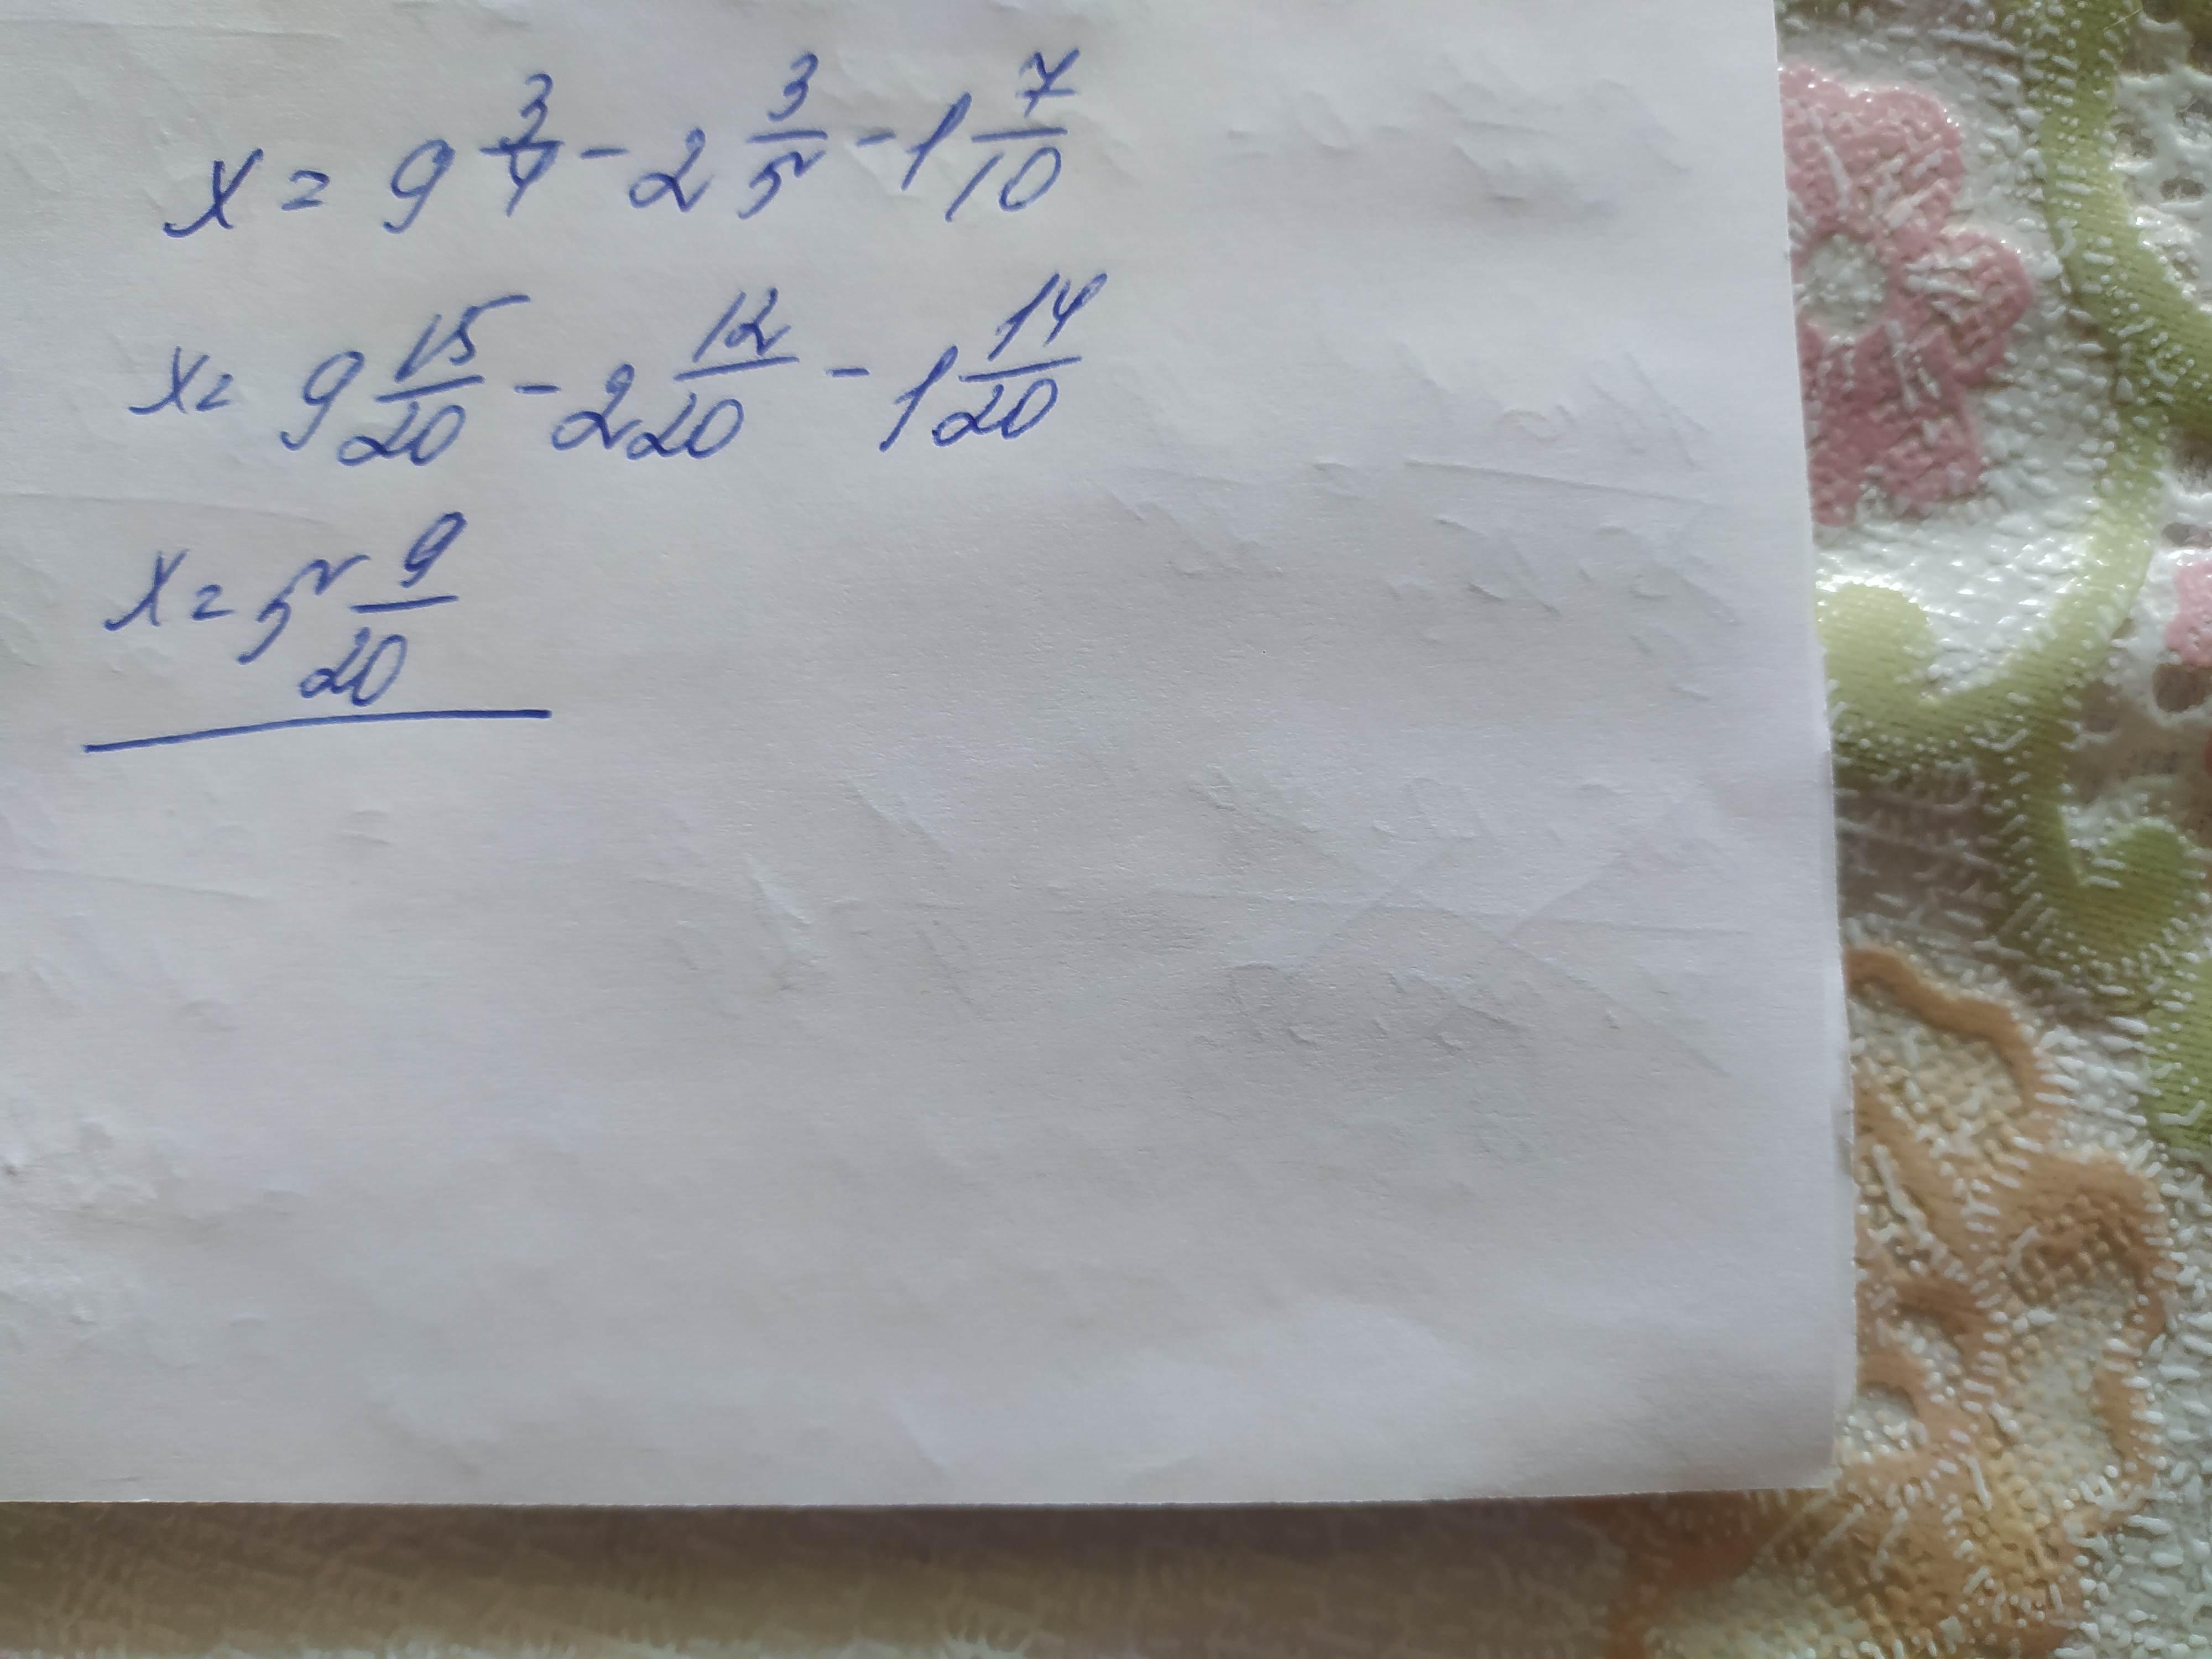 x = 9 3/4 - 2 3/5 - 1 7/10
x = 9 15/20 - 2 12/20 - 1 14/20
x = 5 9/20